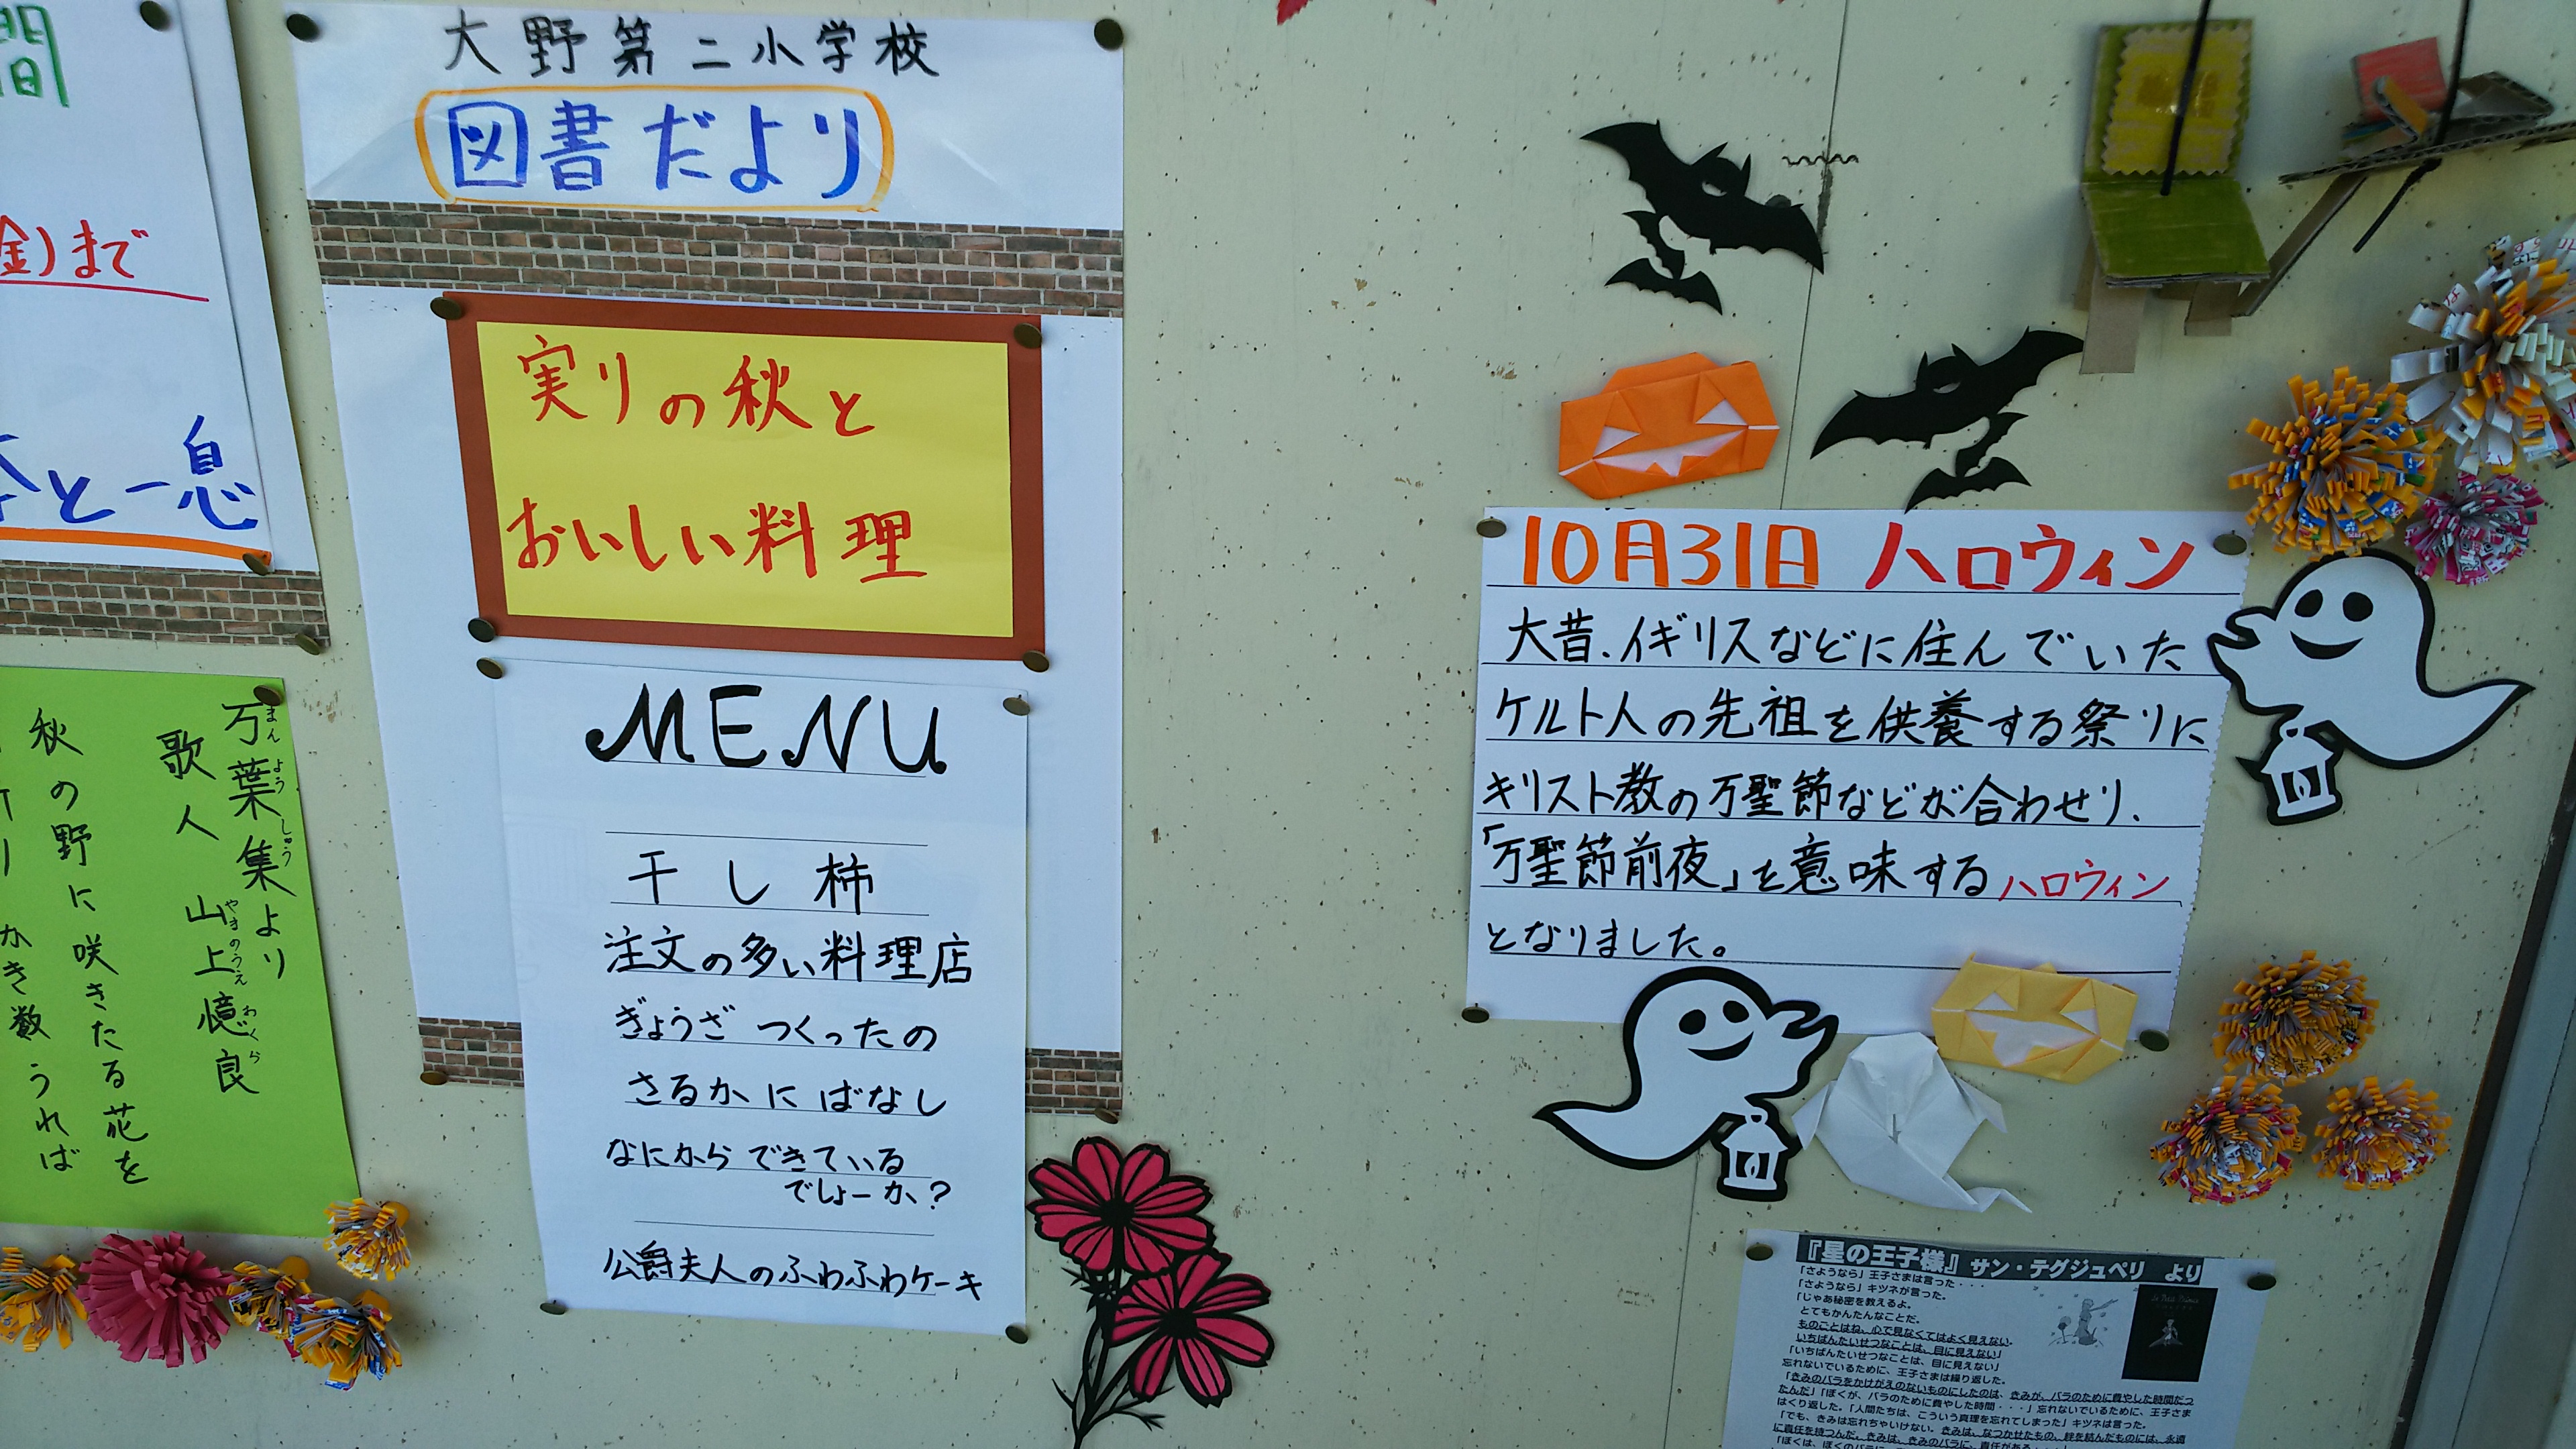 間
日
金)まで
と一息
万葉集より
まんようしゅう
歌人 山上憶良
やまのうえ おくら
秋の野に咲きたる花を
かき数うれば
大野第二小学校
図書だより
実りの秋と
おいしい料理
MENU
干し柿
注文の多い料理店
ぎょうざ つくったの
さるかにばなし
なにからできている
でしょーか?
公爵夫人のふわふわケーキ
10月31日 ハロウィン
大昔、イギリスなどに住んでいた
ケルト人の先祖を供養する祭りに
キリスト教の万聖節などが合わせり、
「万聖節前夜」を意味するハロウィン
となりました。
『星の王子様』サン・テグジュペリ より
「さようなら」王子さまは言った・・・
「さようなら」キツネが言った。
「じゃあ秘密を教えるよ。
とてもかんたんなことだ。
ものごとはね、心で見なくてはよく見えない。
いちばんたいせつなことは、目に見えない」
「いちばんたいせつなことは、目に見えない」
忘れないでいるために、王子さまは繰り返した。
「きみのバラをかけがえのないものにしたのは、きみが、バラのために費やした時間だっ
たんだ」「ぼくが、バラのために費やした時間・・・」忘れないでいるために、王子さま
はくり返した。「人間たちは、こういう真理を忘れてしまった」キツネは言った。
「でも、きみは忘れちゃいけない。きみは、なつかせたもの、絆を結んだものには、永遠
に責任を持つんだ。きみは、きみのバラに、責任がある・・・」